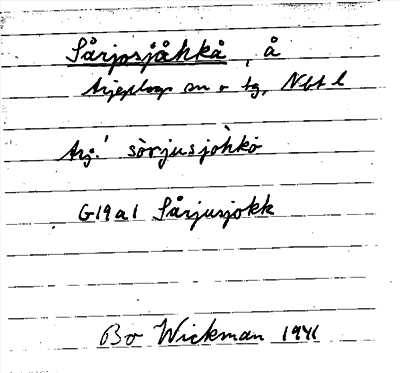 Sårjosjåhkå, å
Arjeplogs sn o tg, Nbt l
Arj.! sòrjusjòhkò
G19a1 Sårjusjokk
Bo Wickman 1941